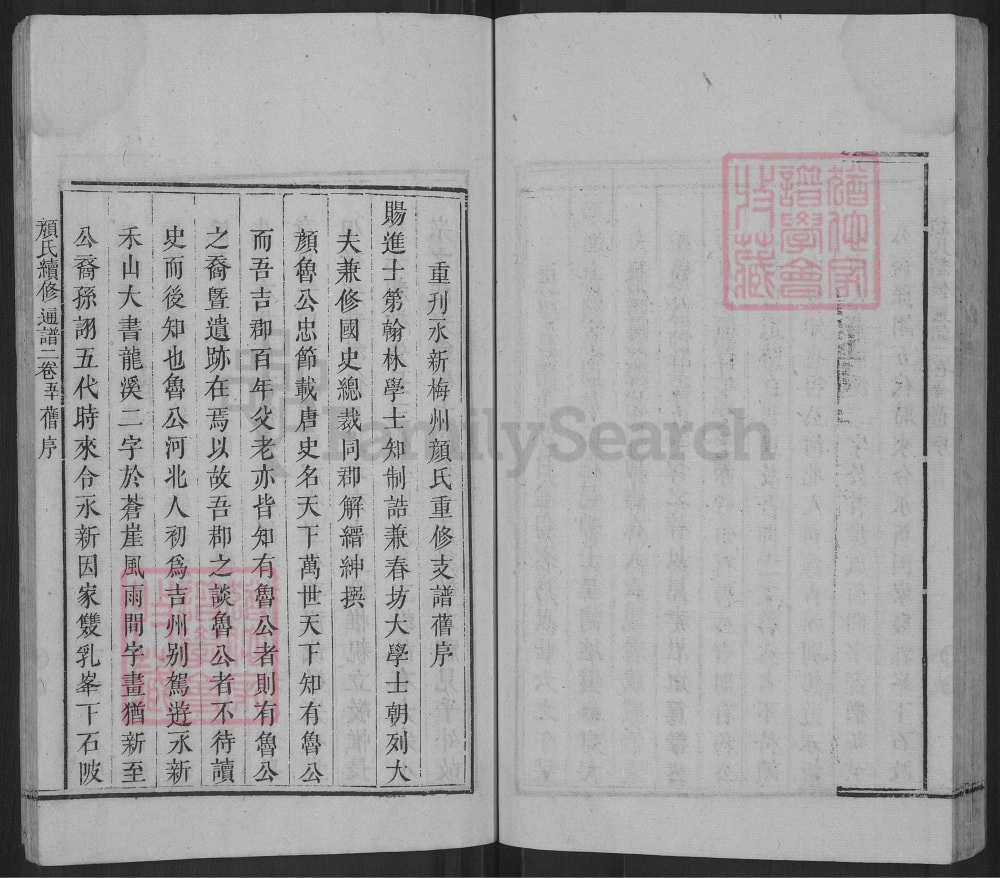 重刊永新梅州顏氏重修支譜舊序
賜進士第翰林學士知制誥兼春坊大學士朝列大
夫兼修國史總裁同郡解縉紳撰
顏魯公忠節載唐史名天下萬世天下知有魯公
而吾吉郡百年父老亦皆知有魯公者則有魯公
之裔暨遺跡在焉以故吾郡之談魯公者不待讀
史而後知也魯公河北人初爲吉州别駕遊永新
禾山大書龍溪二字於蒼崖風雨間字畫猶新至
公裔孫詡五代時來令永新因家雙乳峯下石陂
顏氏續修通譜二卷 舊序
譜學會
收藏
FamilySearch